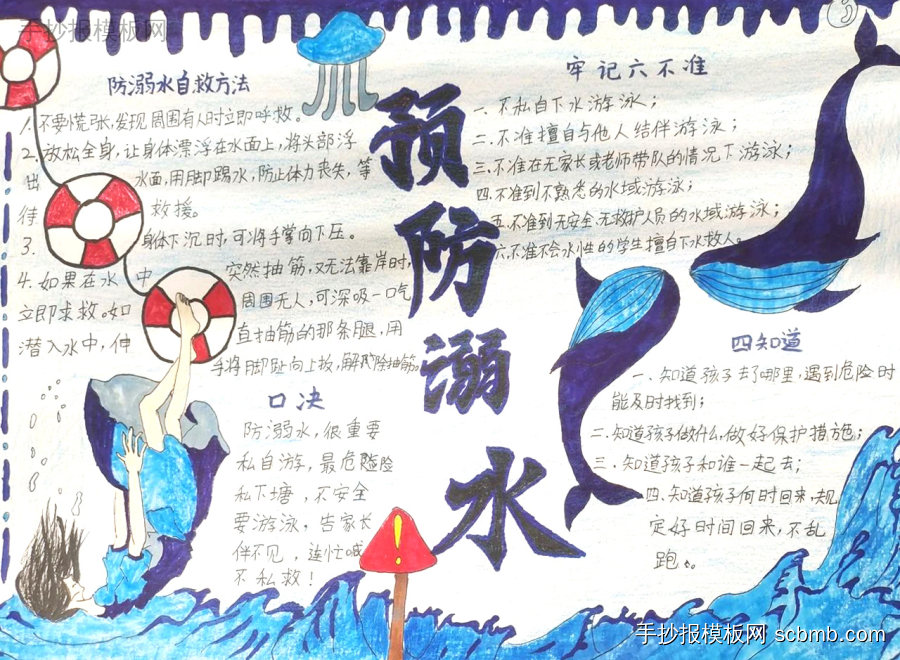 手抄报模板网
防溺水自救方法
1.不要慌张,发现周围有人时立即呼救。
2.放松全身,让身体漂浮在水面上,将头部浮
出水面,用脚踢水,防止体力丧失,等
待救援。
3.身体下沉时,可将手掌向下压。
4.如果在水中突然抽筋,又无法靠岸时,
立即求救。如周围无人,可深吸一口气
潜入水中,伸直抽筋的那条腿,用
手将脚趾向上扳,解除抽筋。
口决
防溺水,很重要
私自游,最危险
私下塘,不安全
要游泳,告家长
伴不见,连忙喊
不私救!
预
防
溺
水
牢记六不准
一、不私自下水游泳;
二.不准擅自与他人结伴游泳;
三.不准在无家长或老师带队的情况下游泳;
四.不准到不熟悉的水域游泳;
五.不准到无安全.无救护人员的水域游泳;
六.不准不会水性的学生擅自下水救人。
四知道
一、知道孩子去了哪里,遇到危险时
能及时找到;
二.知道孩子做什么,做好保护措施;
三.知道孩子和谁一起去;
四.知道孩子何时回来,规
定好时间回来,不乱
跑。
手抄报模板网 scbmb.com